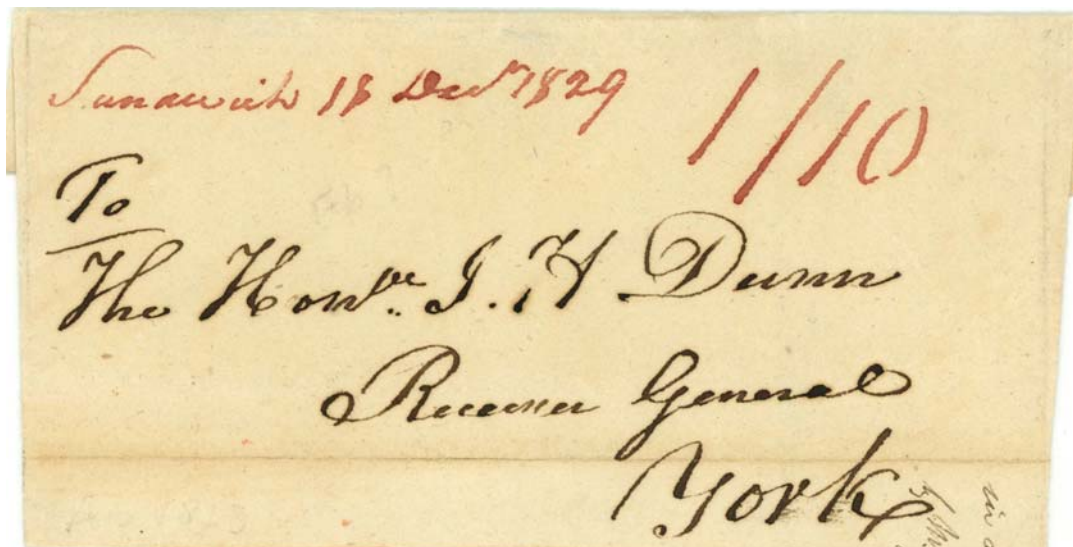 Sandwich 18 Decr 1829
1/10
To
The Honble. J. H Dunn
Receiver General
York